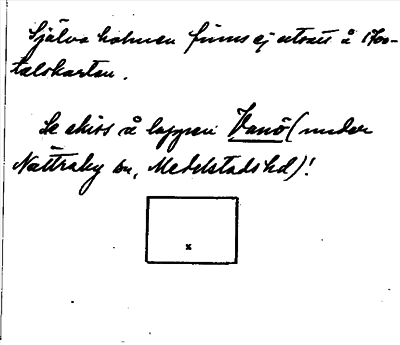 Själva holmen finns ej utsatt å 1700-
talskartan.
Se skiss å lappen Vanö (under
Nättraby sn, Medelstads hd)!
x